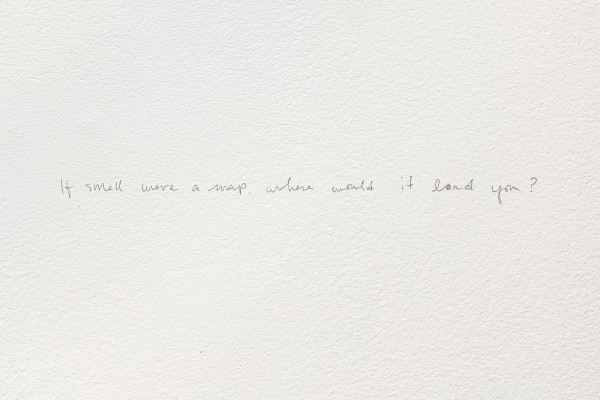 If smell were a map, where would it lead you?